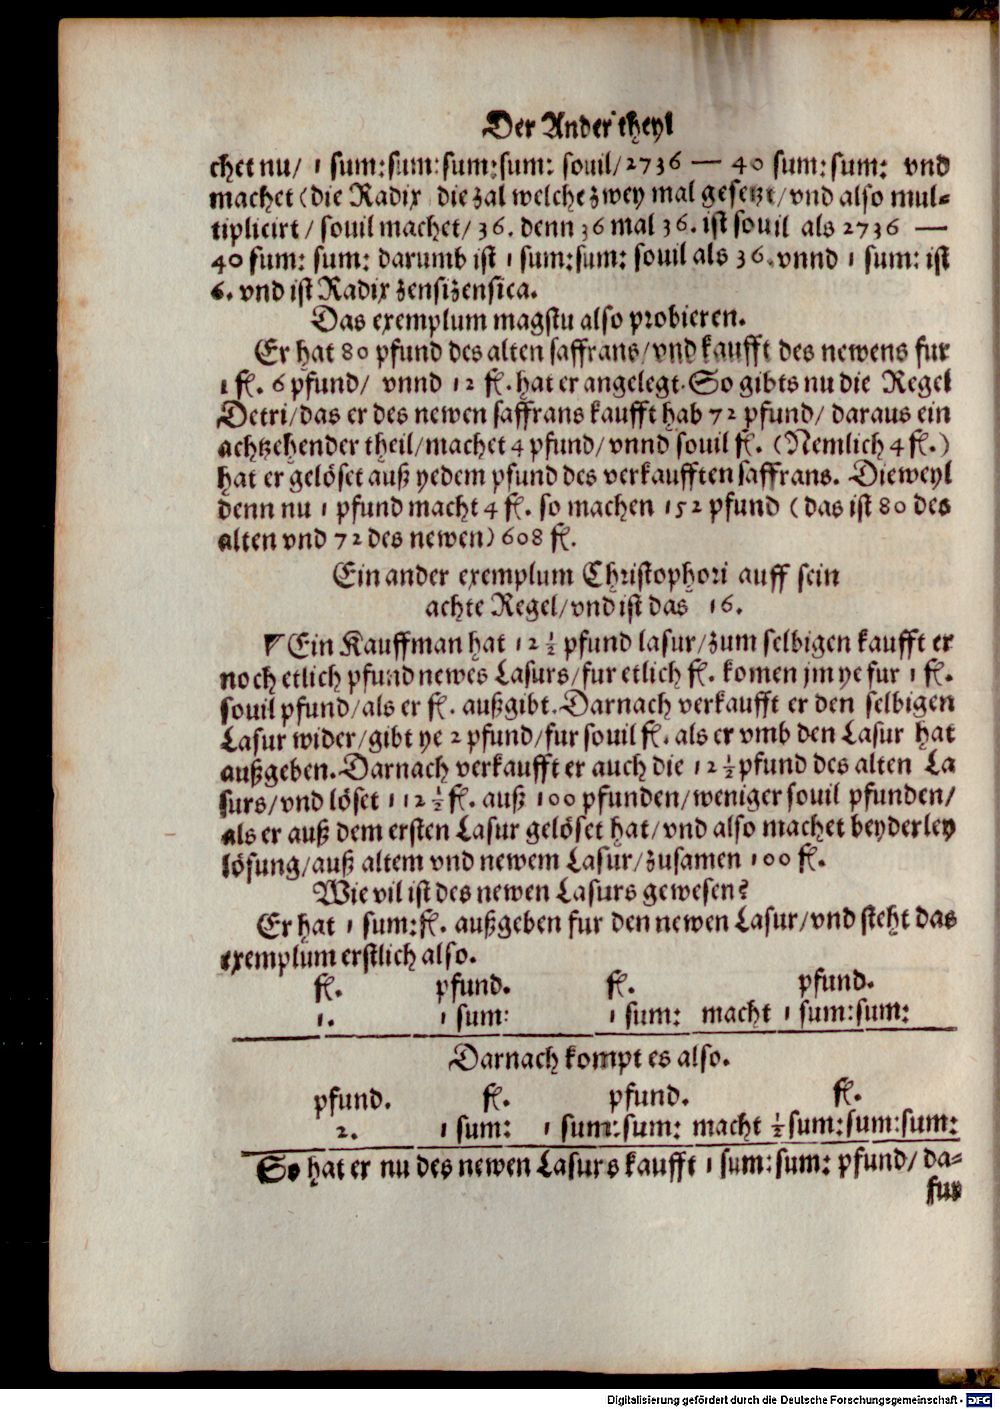 Der Ander theyl
chet nu/ 1 sum:sum:sum:sum: souil/2736 — 40 sum:sum: vnd
machet (die Radix die zal welche zwey mal gesetzt/vnd also mul-
tiplicirt/ souil machet/36. denn 36 mal 36. ist souil als 2736 —
40 sum: sum: darumb ist 1 sum:sum: souil als 36.vnnd 1 sum: ist
6. vnd ist Radix zensizensica.
Das exemplum magstu also probieren.
Er hat 80 pfund des alten saffrans/vnd kaufft des newens fur
1 fl. 6 pfund/ vnnd 12 fl. hat er angelegt. So gibts nu die Regel
Detri/das er des newen saffrans kaufft hab 72 pfund/ daraus ein
achtzehender theil/machet 4 pfund/vnnd souil fl. (Nemlich 4 fl.)
hat er gelöset auß yedem pfund des verkaufften saffrans. Dieweyl
denn nu 1 pfund macht 4 fl. so machen 152 pfund (das ist 80 des
alten vnd 72 des newen) 608 fl.
Ein ander exemplum Christophori auff sein
achte Regel/vnd ist das 16.
Ein Kauffman hat 12 ½ pfund lasur/zum selbigen kaufft er
noch etlich pfund newes Lasurs/fur etlich fl. komen jm ye fur 1 fl.
souil pfund/als er fl. außgibt. Darnach verkaufft er den selbigen
Lasur wider/gibt ye 2 pfund/fur souil fl. als er vmb den Lasur hat
außgeben. Darnach verkaufft er auch die 12 ½ pfund des alten La
surs/vnd löset 112 ½ fl. auß 100 pfunden/weniger souil pfunden/
als er auß dem ersten Lasur gelöset hat/vnd also machet beyderley
lösung/auß altem vnd newem Lasur/zusamen 100 fl.
Wie vil ist des newen Lasurs gewesen?
Er hat 1 sum:fl. außgeben fur den newen Lasur/vnd steht das
exemplum erstlich also.
fl. pfund. fl. pfund.
1. 1 sum: 1 sum: macht 1 sum:sum:
Darnach kompt es also.
pfund. fl. pfund. fl.
2. 1 sum: 1 sum:sum: macht ½ sum:sum:sum:
So hat er nu des newen Lasurs kaufft 1 sum:sum: pfund/ da-
fur
Digitalisierung gefördert durch die Deutsche Forschungsgemeinschaft - DFG